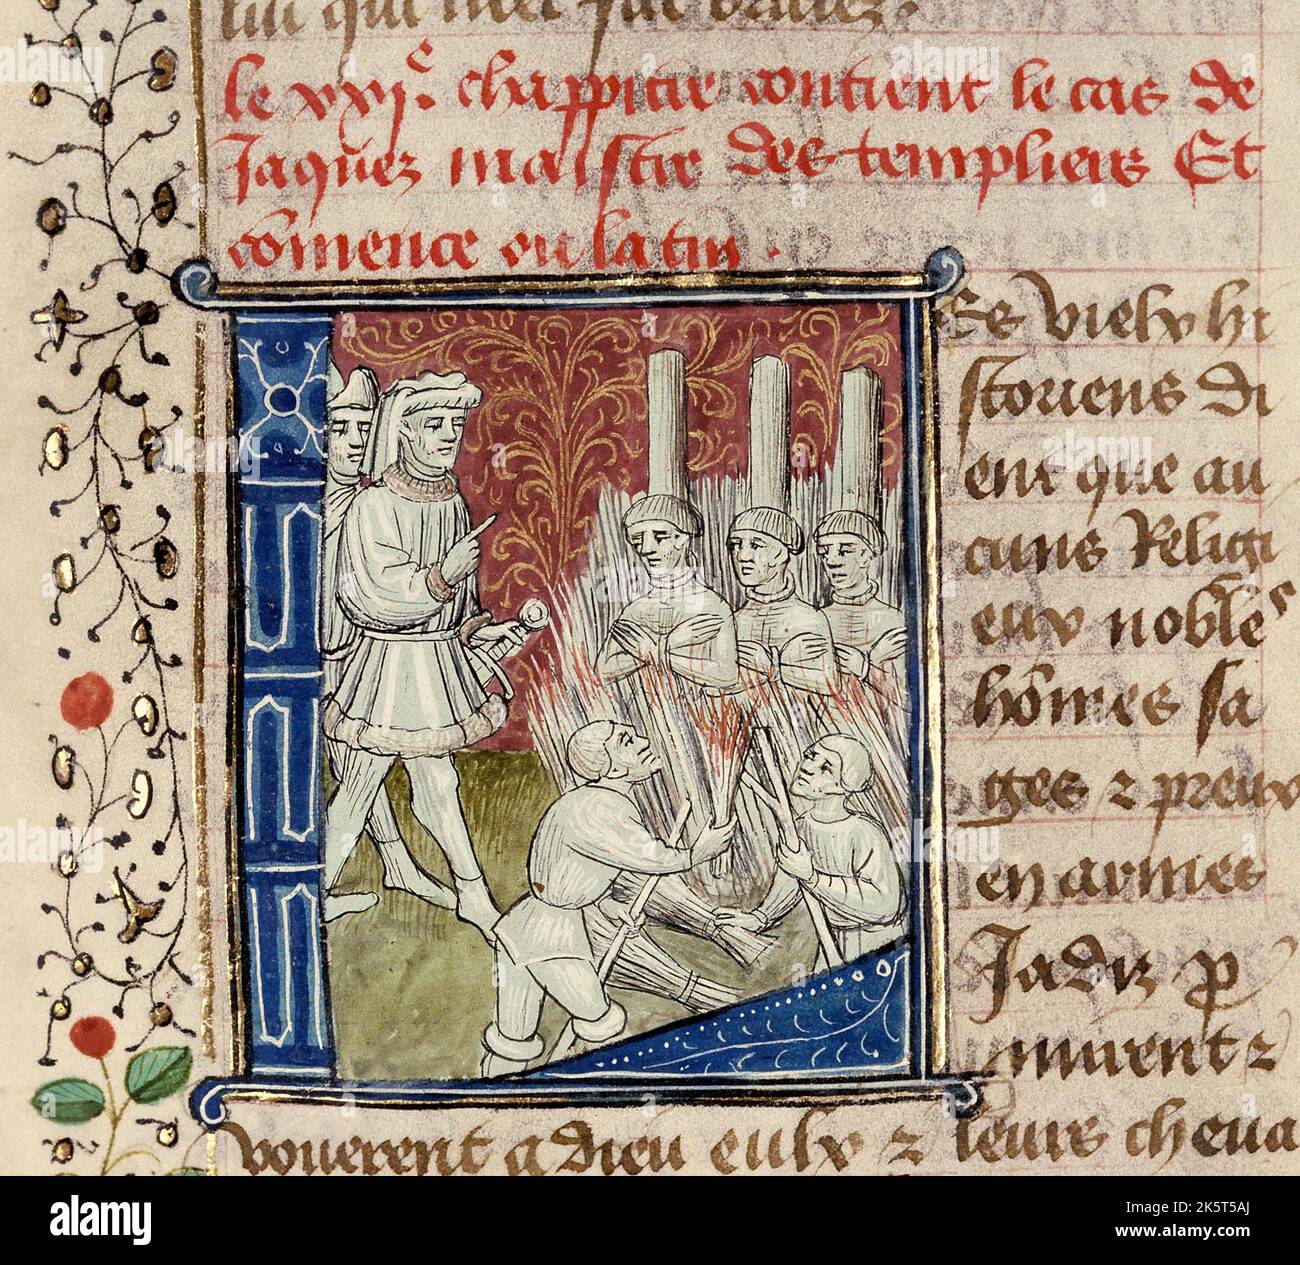 le xxj.e chappitre contient le cas de
Jaques maistre des templiers Et
cõmence en latin .
Les vielx hi
storiens di
ent que au
cuns Religi
eux nobles
hõmes sa
ges ⁊ preux
en armes
Jadiz p
murent ⁊
vouerent a dieu eulx ⁊ leurs cheua
alamy
Image ID: 2K5T5AJ
www.alamy.com